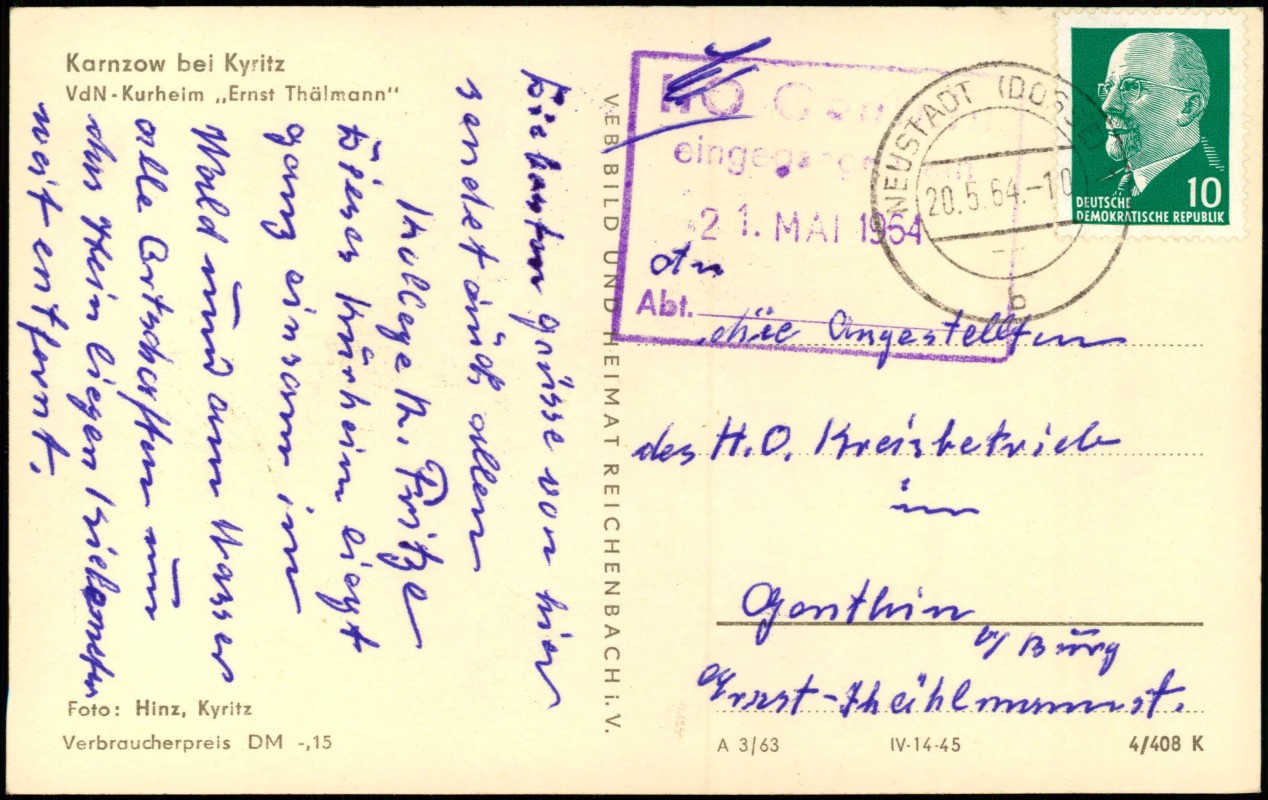 Karnzow bei Kyritz
VdN-Kurheim „Ernst Thälmann"
Die besten grüsse von hier
sendet eüch allen
Kollege K. Fritze
Dieses Kürheim liegt
ganz einsam im
Wald ünd am Wasser
alle Ortschaften üm
das Heim liegen Kielometer
weit entfernt.
Foto: Hinz, Kyritz
Verbraucherpreis DM -,15
VEB BILD UND HEIMAT REICHENBACH i. V.
HO
eingegangen am
21. MAI 1964
Abt.
NEUSTADT (DOSSE)
20.5.64.-10
b
DEUTSCHE
DEMOKRATISCHE REPUBLIK
10
An
die Angestellten
des H.O. Kreisbetrieb
in
Genthin
b/ Bürg
Ernst-Thählmannst.
A 3/63 IV-14-45 4/408 K